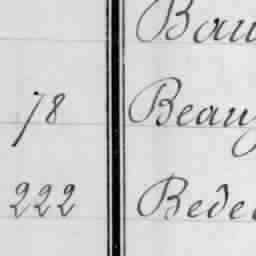 Bau
78 Beau
222 Bede